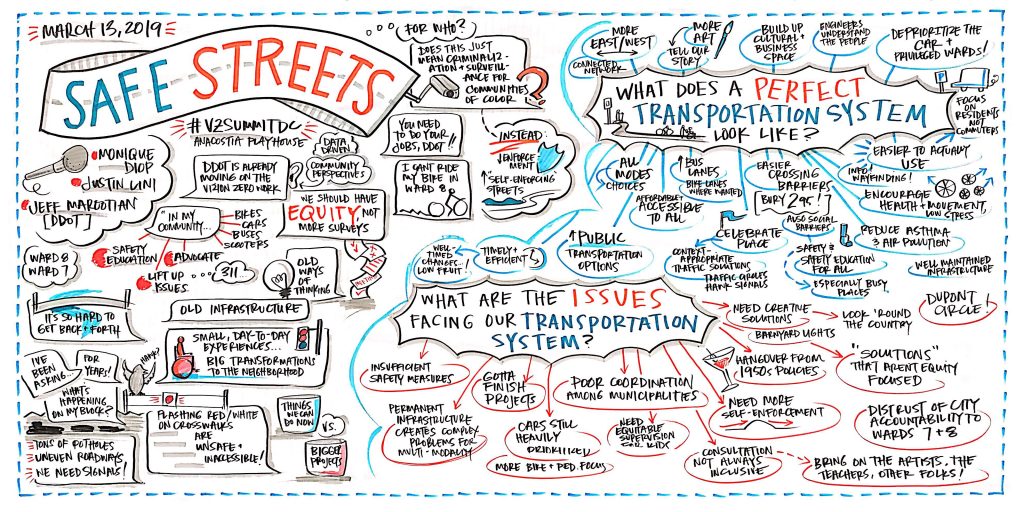 MARCH 13, 2019
SAFE STREETS
#VZSUMMITDC
"ANACOSTIA PLAYHOUSE"
MONIQUE
DIOP
JUSTIN LINI
JEFF MAROOTIAN
[DDOT]
WARD 8
WARD 7
DDOT IS ALREADY
MOVING ON THE
VIZION ZERO WORK
DATA
DRIVEN
COMMUNITY
PERSPECTIVES
"IN MY
COMMUNITY...
BIKES
CARS
BUSES
SCOOTERS
SAFETY
EDUCATION
ADVOCATE
LIFT UP
ISSUES
... 311
WE SHOULD HAVE
EQUITY, NOT
MORE SURVEYS
OLD
WAYS
OF
THINKING
OLD INFRASTRUCTURE
IT'S SO HARD TO
GET BACK + FORTH
SMALL, DAY-TO-DAY
EXPERIENCES...
BIG TRANSFORMATIONS
TO THE NEIGHBORHOOD
I'VE
BEEN
ASKING...
FOR
YEARS!
HONK!
WHAT'S
HAPPENING
ON MY BLOCK?
TONS OF POTHOLES
UNEVEN ROADWAYS
WE NEED SIGNALS!
FLASHING RED/WHITE
ON CROSSWALKS
ARE
UNSAFE +
INACCESSIBLE!
THINGS
WE CAN
DO NOW
VS.
BIGGER
PROJECTS
... FOR WHO?
DOES THIS JUST
MEAN CRIMINALIZ-
ATION + SURVEILL-
ANCE FOR
COMMUNITIES
OF COLOR
?
YOU NEED
TO DO YOUR
JOBS, DDOT!!
I CAN'T RIDE
MY BIKE IN
WARD 8
INSTEAD:
↓ENFORCE
MENT
↑SELF-ENFORCING
STREETS
WHAT DOES A PERFECT
TRANSPORTATION SYSTEM
LOOK LIKE?
MORE
EAST/WEST
CONNECTED
NETWORK
MORE
ART
TELL OUR
STORY
BUILD UP
CULTURAL +
BUSINESS
SPACE
ENGINEERS
UNDERSTAND
THE PEOPLE
DEPRIORITIZE THE
CAR +
PRIVILEGED WARDS!
FOCUS
ON
RESIDENTS
NOT
COMMUTERS
EASIER TO ACTUALLY
USE
INFO +
WAYFINDING!
ENCOURAGE
HEALTH + MOVEMENT,
LOW STRESS
REDUCE ASTHMA
3 AIR POLLUTION
WELL MAINTAINED
INFRASTRUCTURE
EASIER
CROSSING
BARRIERS
[BURY 295!]
ALSO SOCIAL
BARRIERS
SAFETY &
SAFETY EDUCATION
FOR ALL
ESPECIALLY BUSY
PLACES
↑BUS
LANES
BIKE LANES
WHERE WANTED
ALL
MODES
CHOICES
AFFORDABLE +
ACCESSIBLE
TO ALL
CELEBRATE
PLACE
CONTEXT-
APPROPRIATE
TRAFFIC SOLUTIONS
TRAFFIC CIRCLES
HAWK SIGNALS
↑PUBLIC
TRANSPORTATION
OPTIONS
TIMELY +
EFFICIENT
WELL-
TIMED
CHANGES...
LOW FRUIT!
WHAT ARE THE ISSUES
FACING OUR TRANSPORTATION
SYSTEM?
NEED CREATIVE
SOLUTIONS
LOOK 'ROUND
THE COUNTRY
BARNYARD LIGHTS
DUPONT
CIRCLE!
HANGOVER FROM
1950s POLICIES
"SOLUTIONS"
THAT AREN'T EQUITY
FOCUSED
NEED MORE
SELF-ENFORCEMENT
DISTRUST OF CITY
ACCOUNTABILITY TO
WARDS 7 + 8
CONSULTATION
NOT ALWAYS
INCLUSIVE
BRING ON THE ARTISTS, THE
TEACHERS, OTHER FOLKS!
INSUFFICIENT
SAFETY MEASURES
GOTTA
FINISH
PROJECTS
POOR COORDINATION
AMONG MUNICIPALITIES
PERMANENT
INFRASTRUCTURE
CREATES COMPLEX
PROBLEMS FOR
MULTI-MODALITY
CARS STILL
HEAVILY
PRIORITIZED
MORE BIKE + PED. FOCUS
NEED
EQUITABLE
SUPERVISION
FOR KIDS